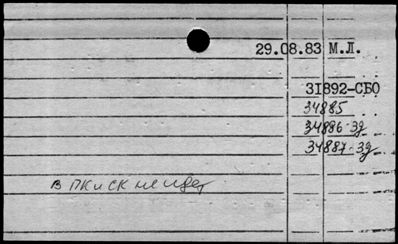 29.08.83 М.Л.
31892-СБО
34885
34886-зд
34887-зд
в ПК и СК не идет